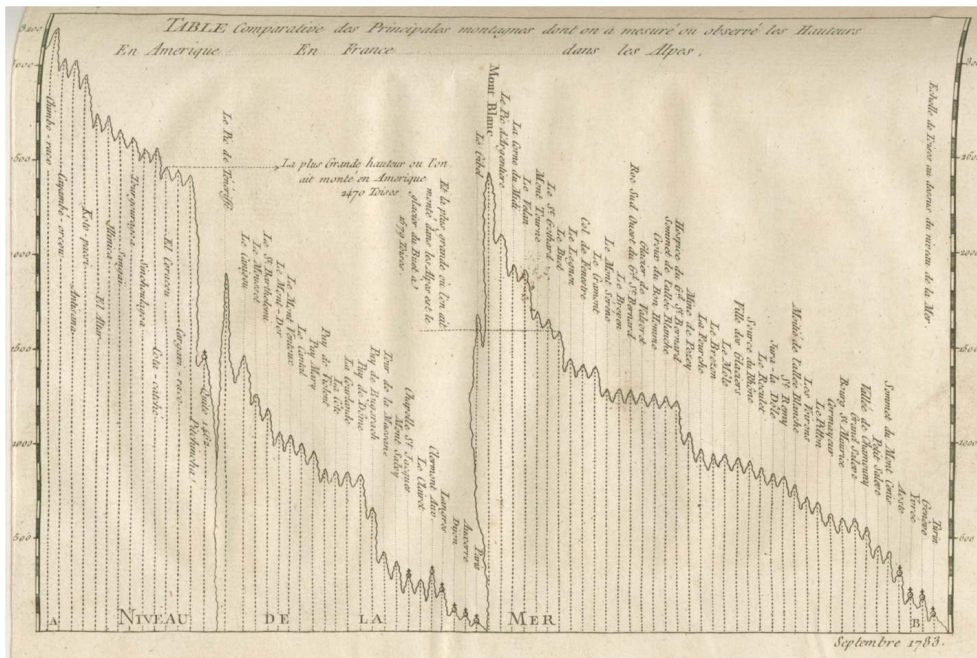 TABLE Comparative des Principales montagnes dont on a mesuré ou observé les Hauteurs
En Amerique En France dans les Alpes.
Echelle de Toises au dessus du niveau de la Mer
Chimbo-raco
Cayambo-orcou
Antisana
Koto-pacci
El Altar
Illinica
Sangai
Tourgouragoa
Sinchoulagoa
Cota-catche
El Coracou
Cargavi-raco
Quito 1462
Pichincha
La plus Grande hauteur ou l'on
ait monté en Amerique
2470 Toises
Le Pic de Teneriffe
Le Canigou
Le Mousset
Le St Barthelemi
Le Mont-Dor
Le Mont Ventoux
Le Cantal
Puy Mary
Puy de Violent
La Côte
La Coulande
Puy de Dôme
Puy de Bugarach
Tour de la Massane
Mont Salvy
Chapelle St Jacques
La Clairet
Clermont Auv
Langres
Dijon
Auxerre
Paris
Et la plus grande où l'on ait
monté dans les Alpes est le
glacier du Buet à
1579 Toises
Le Gibel
Mont Blanc
Le Pic d'Argentiere
La Corne du Midi
Le Velan
Mont Tourne
Le St Gothard
Le Buet
Le Lognon
Col de Fenetre
Le Cramont
Le Mont Serene
Le Breven
Roc Sud Ouest du Gd St Bernard
Glacier de Valsoret
Croix du Bon Homme
Sommet de l'allée Blanche
Hospice du Gd St Bernard
Mine de Pesey
La Fourche
Le Brezon
Le Môle
Ville des Glaciers
Source du Rhône
Le Reculet
Jura la Dôle
St Remy
Moitié de l'allée Blanche
Les Fourons
Le Pitton
Cormayeur
Bourg St Maurice
Grand Saleve
Vallée de Chamouny
Petit Saleve
Sommet du Mont Cenis
Aoste
Yvrée
Genève
Turin
A NIVEAU DE LA MER B
Septembre 1783.